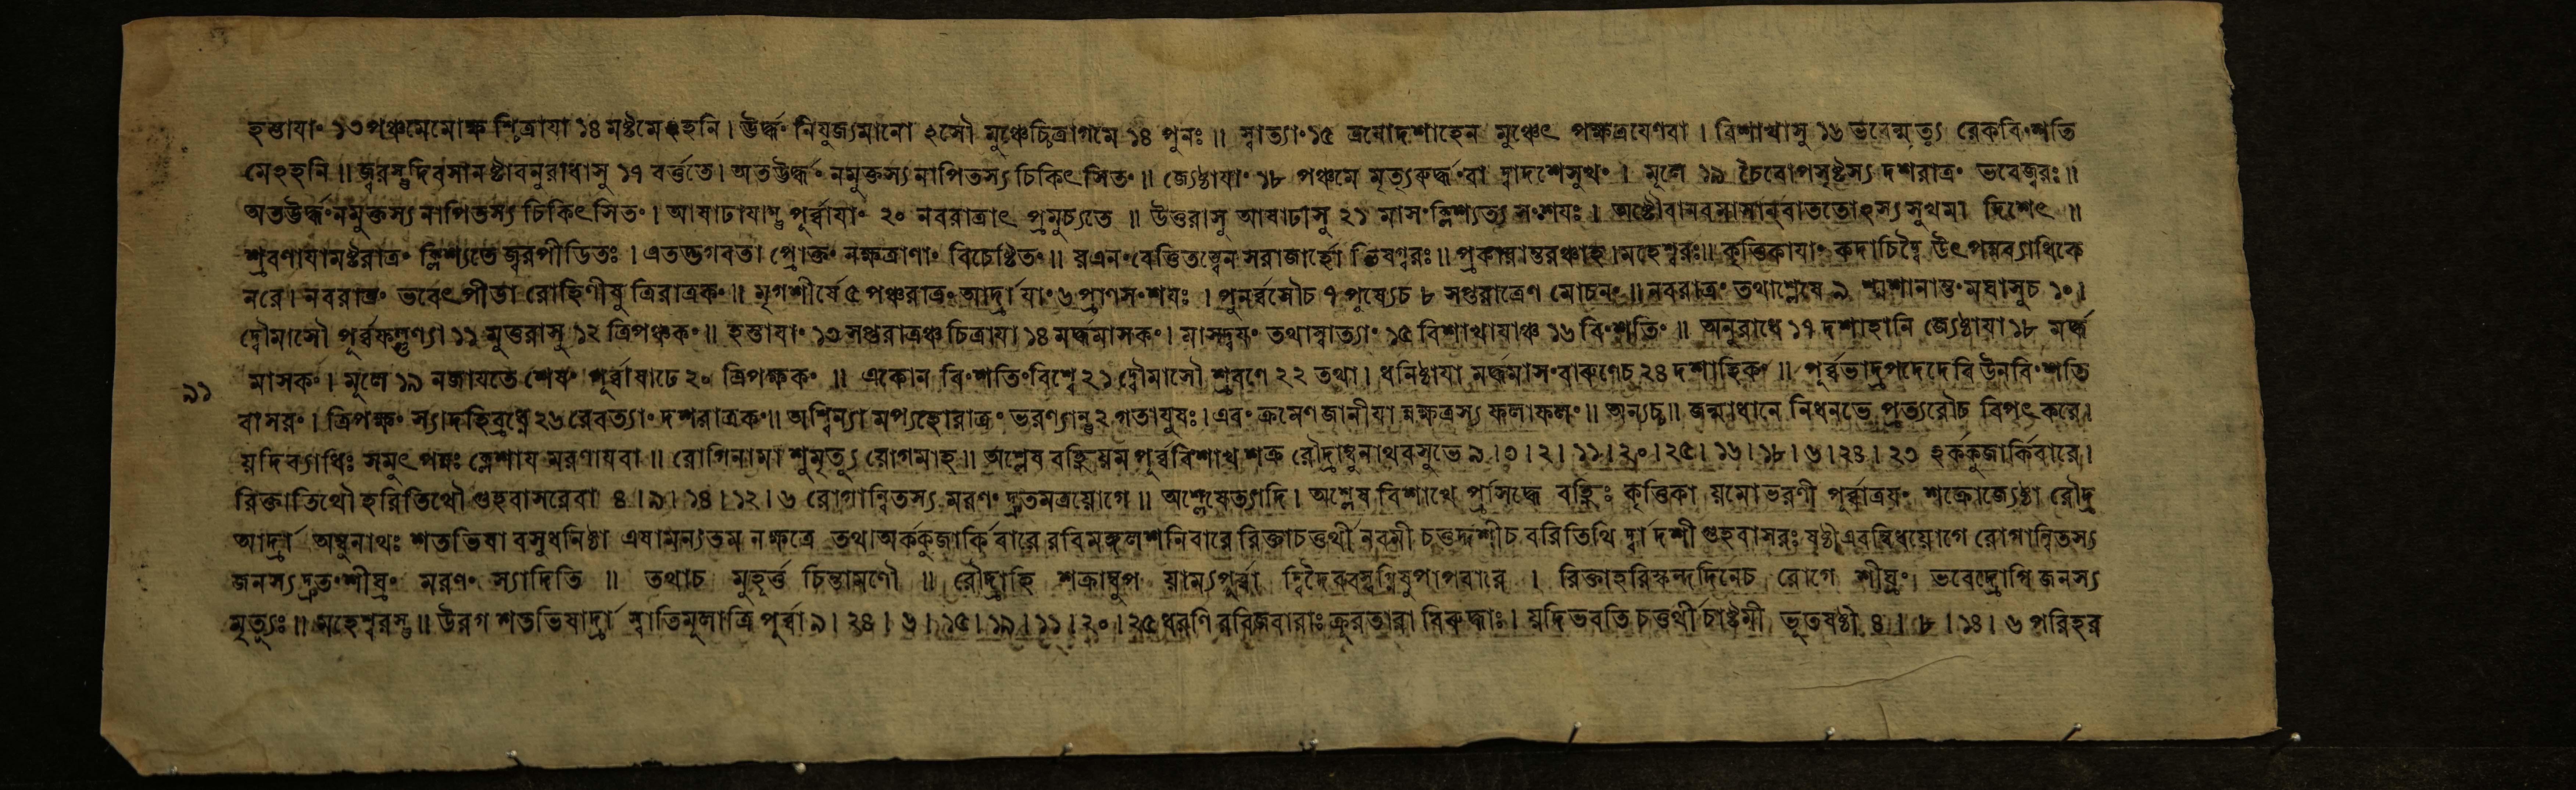 হস্তাযাং ১৩ পঞ্চমেমোক্ষ শ্চিত্রাযা ১৪ মষ্টমেঽহনি। ঊর্দ্ধং নিযুজ্যমানো ঽসৌ মুঞ্চেচ্চিত্রাগমে ১৪ পুনঃ॥ স্বাত্যাং ১৫ ত্রযোদশাহেন মুঞ্চেৎ পক্ষত্রযেণবা। বিশাখাসু ১৬ ভবেন্মৃত্যু রেকবিংশতি
মেঽহনি॥ জ্বরস্তুদিবসানষ্টাবনুরাধাসু ১৭ বর্ত্ততে। অতঊর্দ্ধং নমুক্তস্য নাপিতস্য চিকিৎসিতং॥ জ্যেষ্ঠাযাং ১৮ পঞ্চমে মৃত্যুরূর্দ্ধংবা দ্বাদশেসুখং। মূলে ১৯ চৈবোপসৃষ্টস্য দশরাত্রং ভবেজ্বরঃ॥
অতঊর্দ্ধংনমুক্তস্য নাপিতস্য চিকিৎসিতং। আষাঢাযাস্তু পূর্ব্বাযাং ২০ নবরাত্রাৎ প্রমুচ্যতে॥ উত্তরাসু আষাঢাসু ২১ মাসংক্লিশ্যত্য সংশযঃ। অষ্টৌবানবমাসান্বাততোঽস্য সুখমা দিশেৎ॥
শ্রবণাযামষ্টরাত্রং ক্লিশ্যতে জ্বরপীডিতঃ। এতদ্ভগবতা প্রোক্তং নক্ষত্রাণাং বিচেষ্টিতং॥ য়এনংবেত্তিতত্ত্বেন সরাজার্হো ভিষগ্বরঃ॥ প্রকারান্তরঞ্চাহ।মহেশ্বরঃ॥ কৃত্তিকাযাং কদাচিদ্বৈ উৎপন্নব্যাধিকে
নরে। নবরাত্রং ভবেৎ পীডা রোহিণীষু ত্রিরাত্রকং॥ মৃগশীর্ষে ৫ পঞ্চরাত্রং আর্দ্রাযাং ৬ প্রাণসংশযঃ। পুনর্ব্বসৌচ ৭ পুষ্যেচ ৮ সপ্তরাত্রেণ মোচনং॥ নবরাত্রং তথাশ্লেষে ৯ শ্মশানান্তংমঘাসুচ ১০।
দ্বৌমাসৌ পূর্ব্বফল্গুণ্যা ১১ মুত্তরাসু ১২ ত্রিপঞ্চকং॥ হস্তাযাং ১৩ সপ্তরাত্রঞ্চ চিত্রাযা ১৪ মর্দ্ধমাসকং। মাসদ্বযং তথাস্বাত্যাং ১৫ বিশাখাযাঞ্চ ১৬ বিংশতিং॥ অনুরাধে ১৭ দশাহানি জ্যেষ্ঠাযা ১৮ মর্দ্ধ
৯১
মাসকং। মূলে ১৯ নজাযতে শেষং পূর্ব্বাষাঢে ২০ ত্রিপক্ষকং॥ একোন বিংশতিংবিশ্বে ২১ দ্বৌমাসৌ শ্রবণে ২২ তথা। ধনিষ্ঠাযা মর্দ্ধমাসংবারুণেচ ২৪ দশাহিকং॥ পূর্ব্বভাদ্রপদেদেবি ঊনবিংশতি
বাসরং। ত্রিপক্ষং স্যাদহিবুধ্নে ২৬ রেবত্যাং দশরাত্রকং॥ অশ্বিন্যা মপ্যহোরাত্রং ভরণ্যান্তু ২ গতাযুষঃ। এবং ক্রমেণজানীযা ন্নক্ষত্রস্য ফলাফলং॥ অন্যচ্চ॥ জন্মাধানে নিধনভে প্রত্যরৌচ বিপৎ করে।
য়দিব্যাধিঃ সমুৎপন্নঃ ক্লেশায মরণাযবা॥ রোগিনামা শুমৃত্যু য়োগমাহ॥ অশ্লেষ বহ্নিয়ম পূর্ব্ববিশাখ শক্র রৌদ্রাম্বুনাথবসুভে ৯।৩।২।১১।২০।২৫।১৬।১৮।৬।২৪।২৩ ঽর্ককুজার্কিবারে।
রিক্তাতিথৌ হরিতিথৌ গুহবাসরেবা ৪।৯।১৪।১২।৬ রোগান্বিতস্য মরণং দ্রুতমত্রয়োগে॥ অশ্লেষেত্যাদি। অশ্লেষ বিশাখে প্রসিদ্ধে বহ্নিঃ কৃত্তিকা য়মোভরণী পূর্ব্বাত্রযং শক্রোজ্যেষ্ঠা রৌদ্র
আর্দ্রা অম্বুনাথঃ শতভিষা বসুধনিষ্ঠা এষামন্যতম নক্ষত্রে তথা অর্ককুজার্কি বারে রবিমঙ্গলশনিবারে রিক্তাচতুর্থী নবমী চতুর্দ্দশীচ বরিতিথি দ্বাদশী গুহবাসরঃ ষষ্ঠীএবম্বিধয়োগে রোগান্বিতস্য
জনস্য দ্রুতংশীঘ্রং মরণং স্যাদিতি॥ তথাচ মুহূর্ত্ত চিন্তামণৌ॥ রৌদ্রাহি শক্রাম্বুপ য়াম্যপূর্ব্বা দ্বিদৈববস্বগ্নিষুপাপবারে। রিক্তাহরিস্কন্দদিনেচ রোগে শীঘ্রং। ভবেদ্রোগি জনস্য
মৃত্যুঃ॥ মহেশ্বরস্তু॥ উরগ শতভিষার্দ্রা স্বাতিমূলাত্রি পূর্ব্বা ৯।২৪।৬।১৫।১৯।১১।২০।২৫ ধরণি রবিজবারাঃ ক্রূরতারা বিরুদ্ধাঃ। য়দিভবতি চতুর্থী চাষ্টমী ভূতষষ্ঠী ৪।৮।১৪।৬ পরিহর